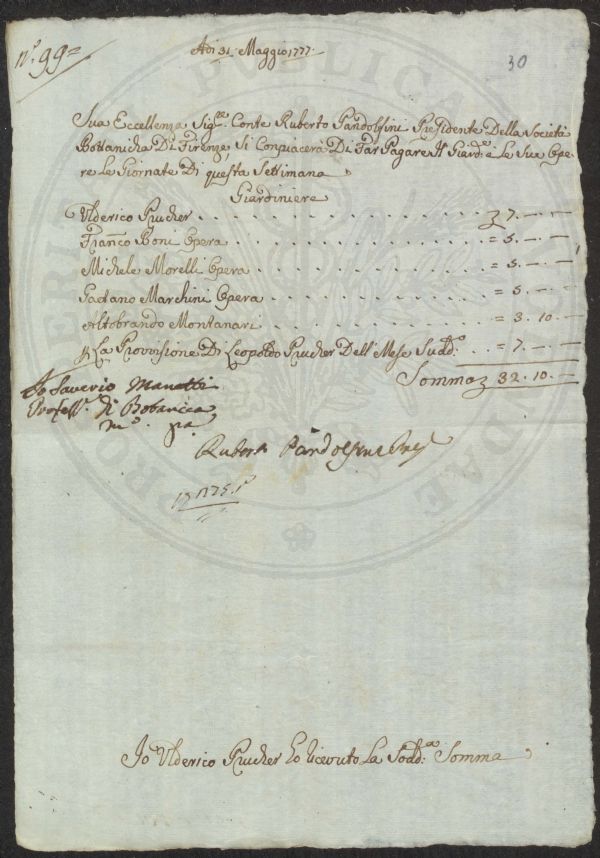 n.º 99=
Adi 31: Maggio 1777:
30
Sua Eccellenza Sig.re Conte Ruberto Pandolfini Presidente Della Società
Bottanicha Di Firenze, Si Conpiacerà Di Far Pagare Il Giard.e e Le Sua Ope-
re Le Giornate Di questa Settimana
Giardiniere
Ulderico Prucher . . . . . . . . . . . . . 7. — . —
Franco Boni Opera . . . . . . . . . . . . = 5. — . —
Michele Morelli Opera . . . . . . . . . . . = 5. — . —
Gaetano Marchini Opera . . . . . . . . . . = 5. — . —
Altobrando Montanari . . . . . . . . . . = 3. 10. —
La Provvisione Di Leopoldo Prucher Dell' Mese Sudd.o . . = 7. — . —
Somma 32. 10. —
Io Saverio Manetti
Profess.e di Botanica
m.o pa
Rubert Pandolfini
Io Ulderico Prucher ho ricevuto La Sodd.a Somma
PUBLICA
PROSPERITATI